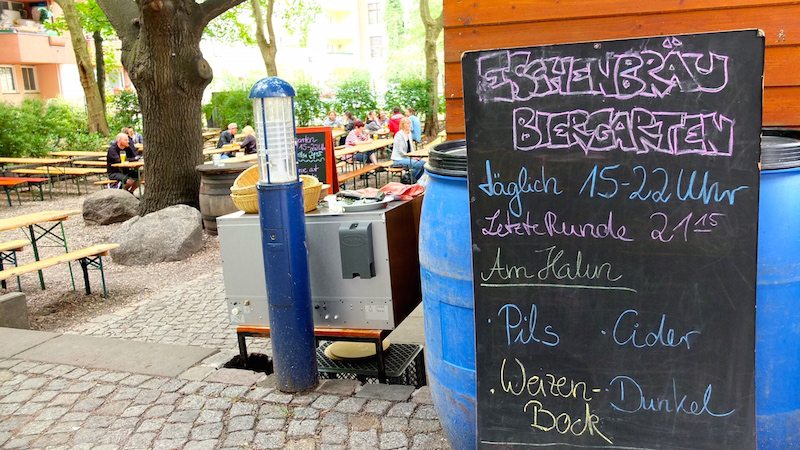 ESCHENBRÄU
BIERGARTEN
Täglich 15-22 Uhr
Letzte Runde 21 15
Am Hahn
· Pils · Cider
· Weizen- · Dunkel
Bock